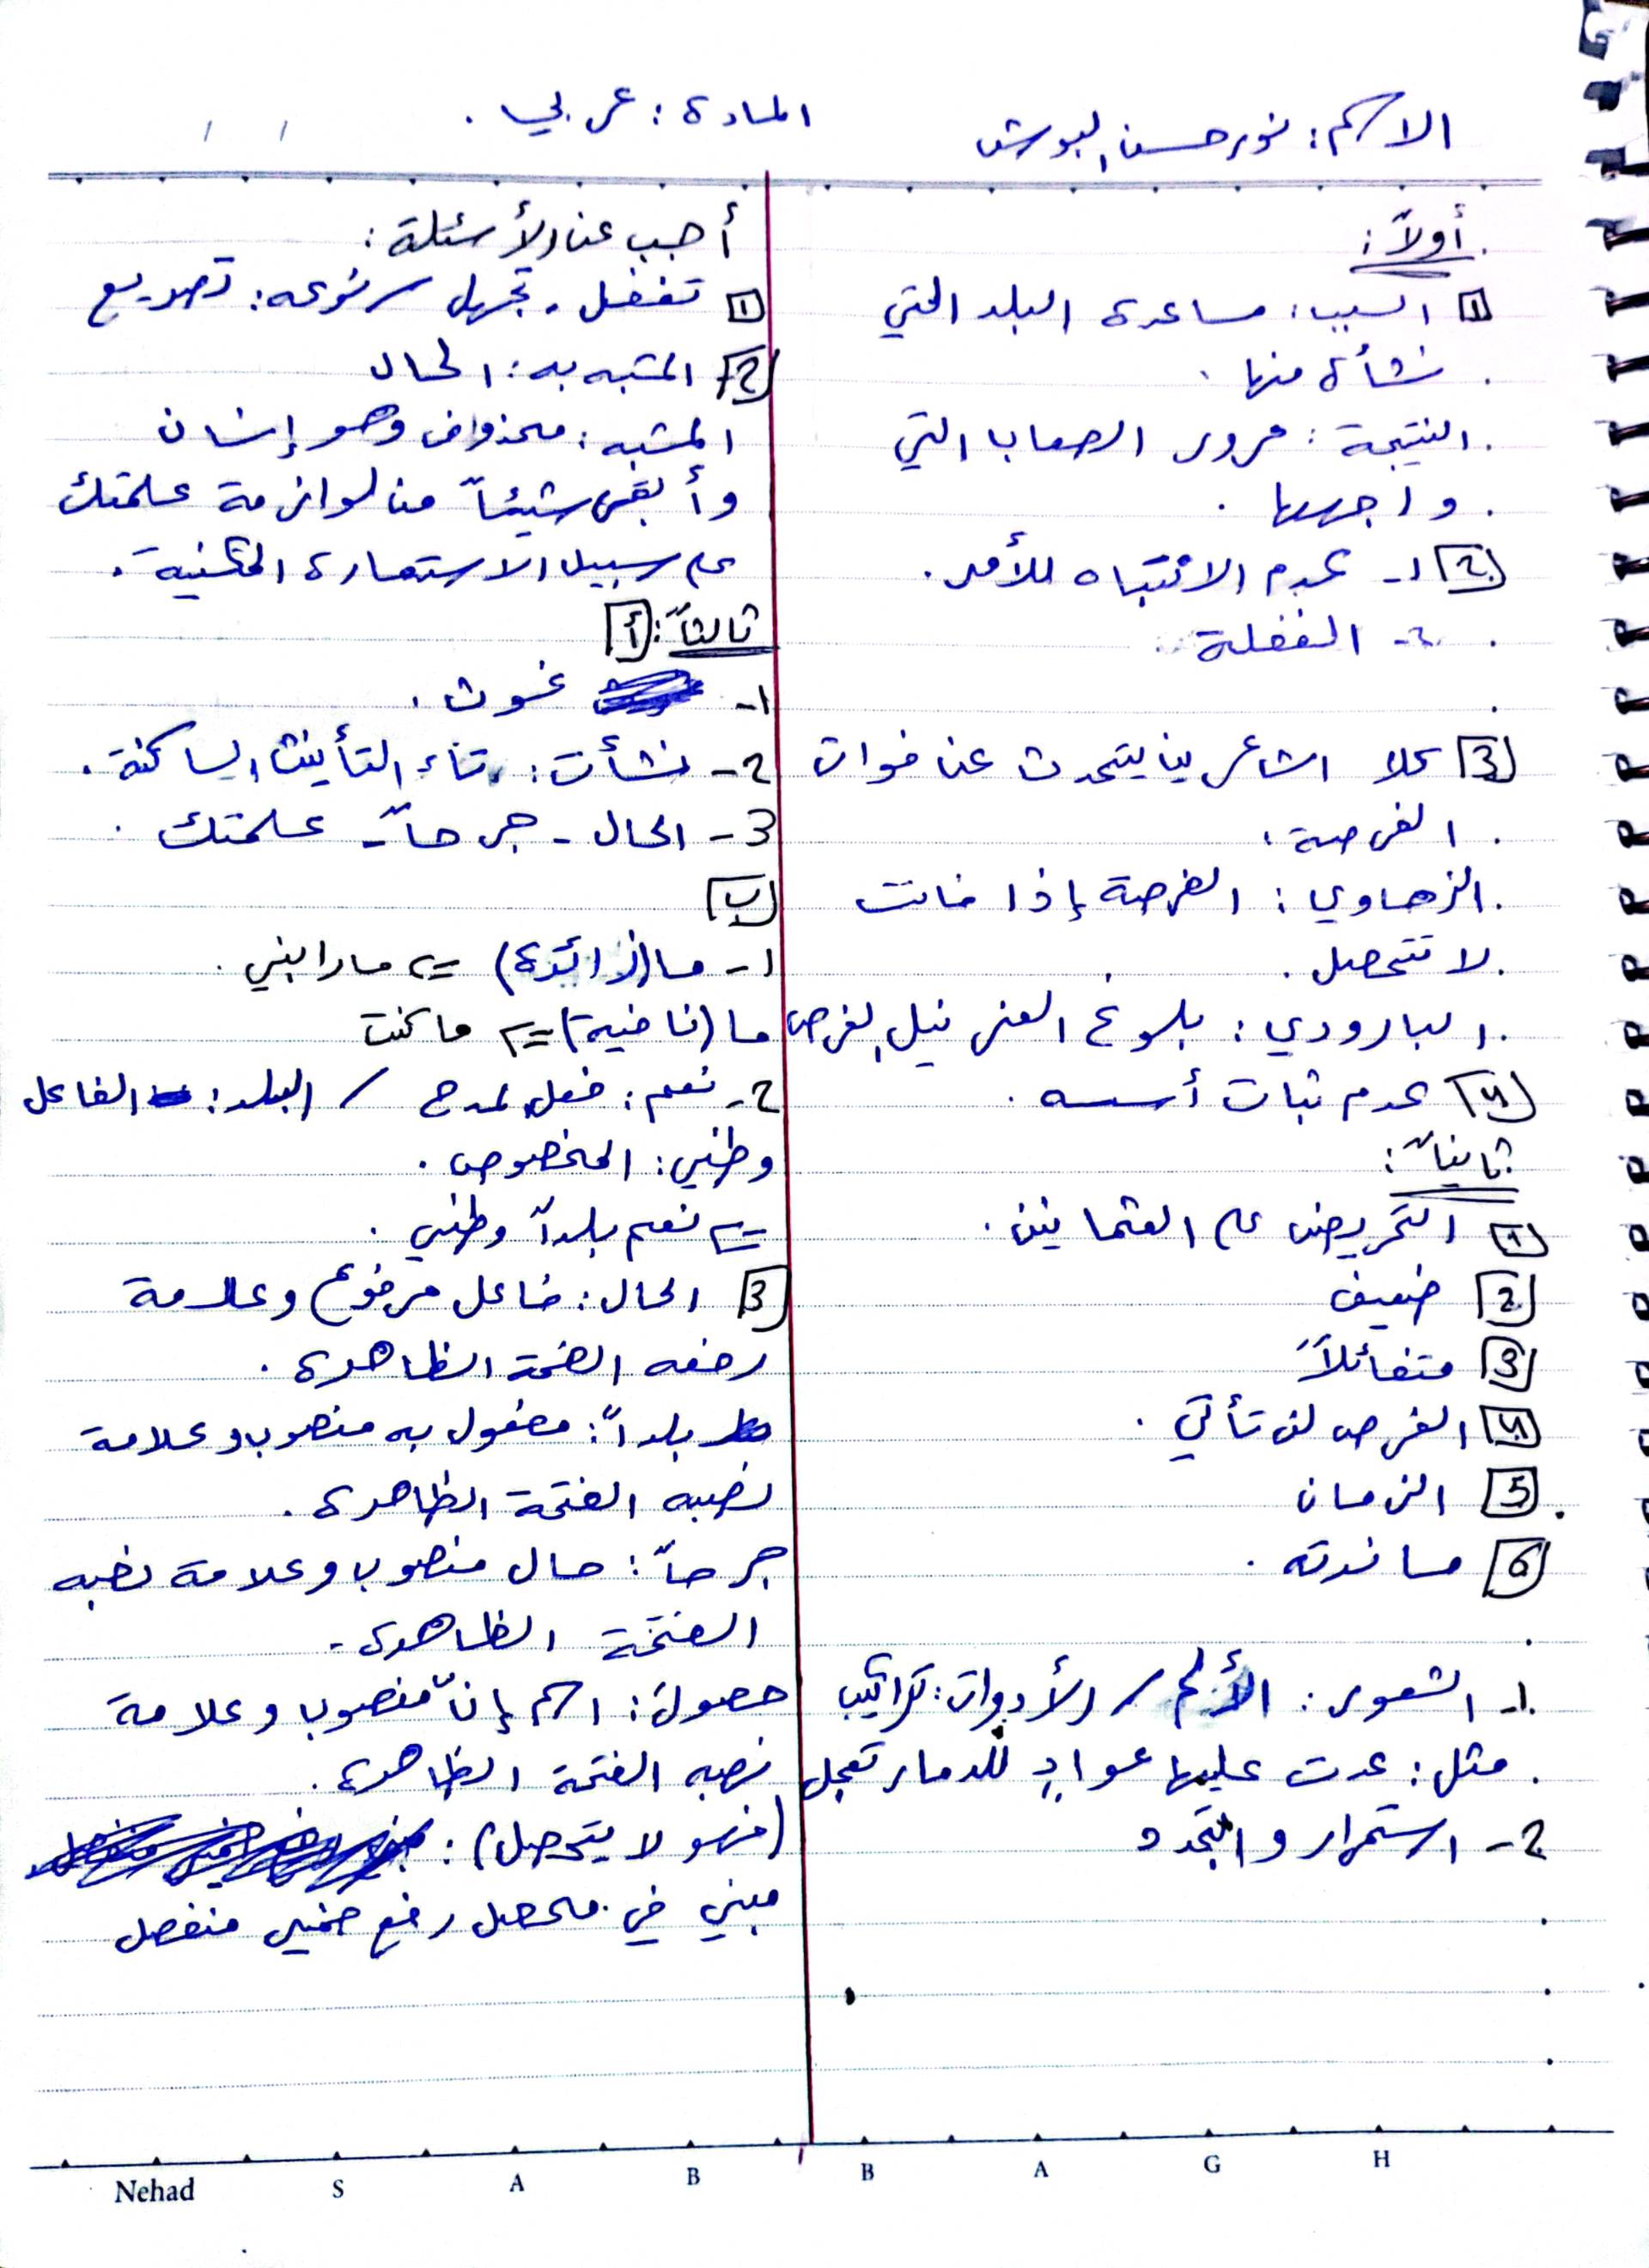 الاسم: نور حسن البوش
المادة: عربي.
أولاً:
1 السبب: مساعدة البلد التي
نشأة منها.
النتيجة: مرور الصعاب التي
واجهها.
2 1- عدم الانتباه للأمر.
2- الغفلة.
3 كلا الشاعرين يتحدث عن فوات
الفرصة:
الزهاوي: الفرصة إذا فاتت
لا تتحصل.
البارودي: بلوغ العز نيل الفرص
4 عدم ثبات أسسه.
ثانياً:
1 التحريض على العثمانيين.
2 ضعيف
3 متفائلاً
4 الفرص لن تأتي.
5 الزمان
6 مساندته.
1- الشعور: الألم / الأدوات: تراكيب
مثل: عدت عليها عوادٍ للدمار تعجل
2- استمرار والتجدد
أجب عن الأسئلة:
1 تغفل - تجهل / نوعه: تصريع
2 المشبه به: الحال
المشبه: محذوف وهو إنسان
وأبقى شيئاً من لوازمة علمتك
على سبيل الاستعارة المكنية.
ثالثاً: أ
1- غوث.
2- نشأت: تاء التأنيث الساكنة.
3- الحال - جرحاً - علمتك.
ب
1- ما (زائدة) => ما رابني.
ما (نافية) => ما كنت
2- نعم: فعل لمدح / البلد: الفاعل
وطني: المخصوص.
=> نعم بلداً وطني.
3 الحال: فاعل مرفوع وعلامة
رفعه الضمة الظاهرة.
بلداً: مفعول به منصوب وعلامة
نصبه الفتحة الظاهرة.
جرحاً: حال منصوب وعلامة نصبه
الفتحة الظاهرة.
حصول: اسم إنّ منصوب وعلامة
نصبه الفتحة الظاهرة.
(فهو لا يتحصل):
مبني في محل رفع ضمير منفصل
Nehad S A B B A G H